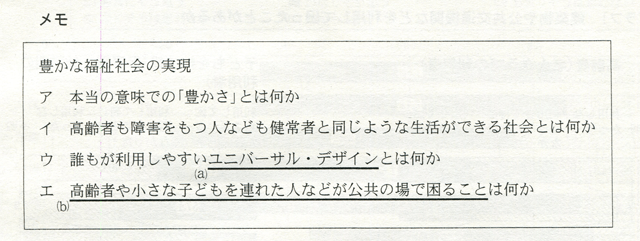 メモ
豊かな福祉社会の実現
ア 本当の意味での「豊かさ」とは何か
イ 高齢者も障害をもつ人なども健常者と同じような生活ができる社会とは何か
ウ 誰もが利用しやすいユニバーサル・デザインとは何か
(a)
エ 高齢者や小さな子どもを連れた人などが公共の場で困ることは何か
(b)